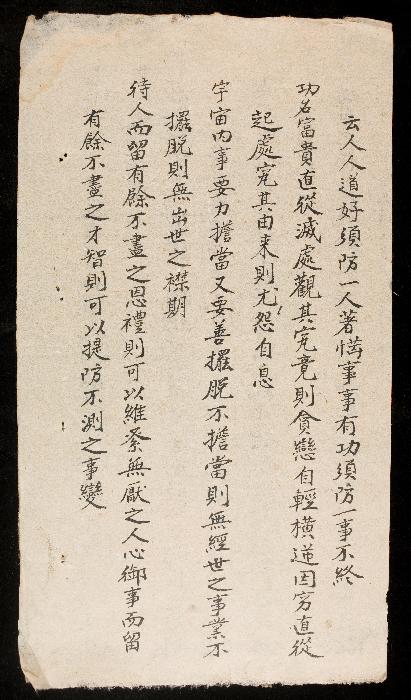 云人人道好須防一人著惱事事有功須防一事不終
功名富貴直從滅處觀其究竟則貪戀自輕橫逆困窮直從
起處究其由来則尤怨自息
宇宙内事要力擔當又要善擺脱不擔當則無經世之事業不
擺脱則無出世之襟期
待人而留有餘不盡之恩禮則可以維繫無厭之人心御事而留
有餘不盡之才智則可以提防不測之事變